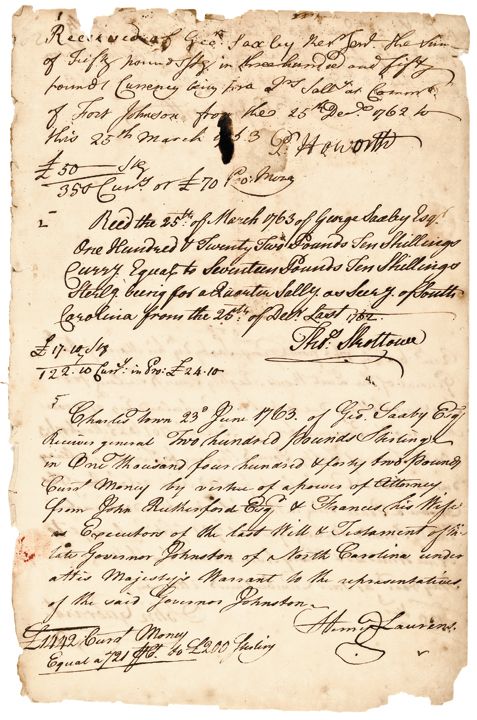 Received of Geo: Saxby Rec.r Gen.l the Sum
of Fifty pounds Stg in three hundred and fifty
pounds Currency being for a Qrs Sally as Comm.r
of Fort Johnson from the 25th Decr 1762 to
this 25th March 1763
P. Howorth
£50 Stg
350 Curry or £70 Pro: Mony
2
Recd the 25th of March 1763 of George Saxby Esqr
One Hundred & Twenty Two Pounds Ten Shillings
Curry Equal to Seventeen Pounds Ten Shillings
Sterlg being for a Quarter Sally as Secry of South
Carolina from the 25th of Decr Last 1762
Thos Skottowe
£17.10 Stg
122.10 Curry in Pro: £24.10
Charles town 23d June 1763 of Geo. Saxby Esqr
Receiver general Two hundred Pounds Sterling
in One Thousand four hundred & forty two Pounds
Currt Money by virtue of a power of Attorney
from John Rutherford Esqr & Frances his Wife
as Executors of the last Will & Testament of the
late Governor Johnston of North Carolina under
a His Majesty's Warrant to the representatives
of the said Governor Johnston
Henry Laurens.
£1442 Currt Money
Equal a 721 to £200 Sterling